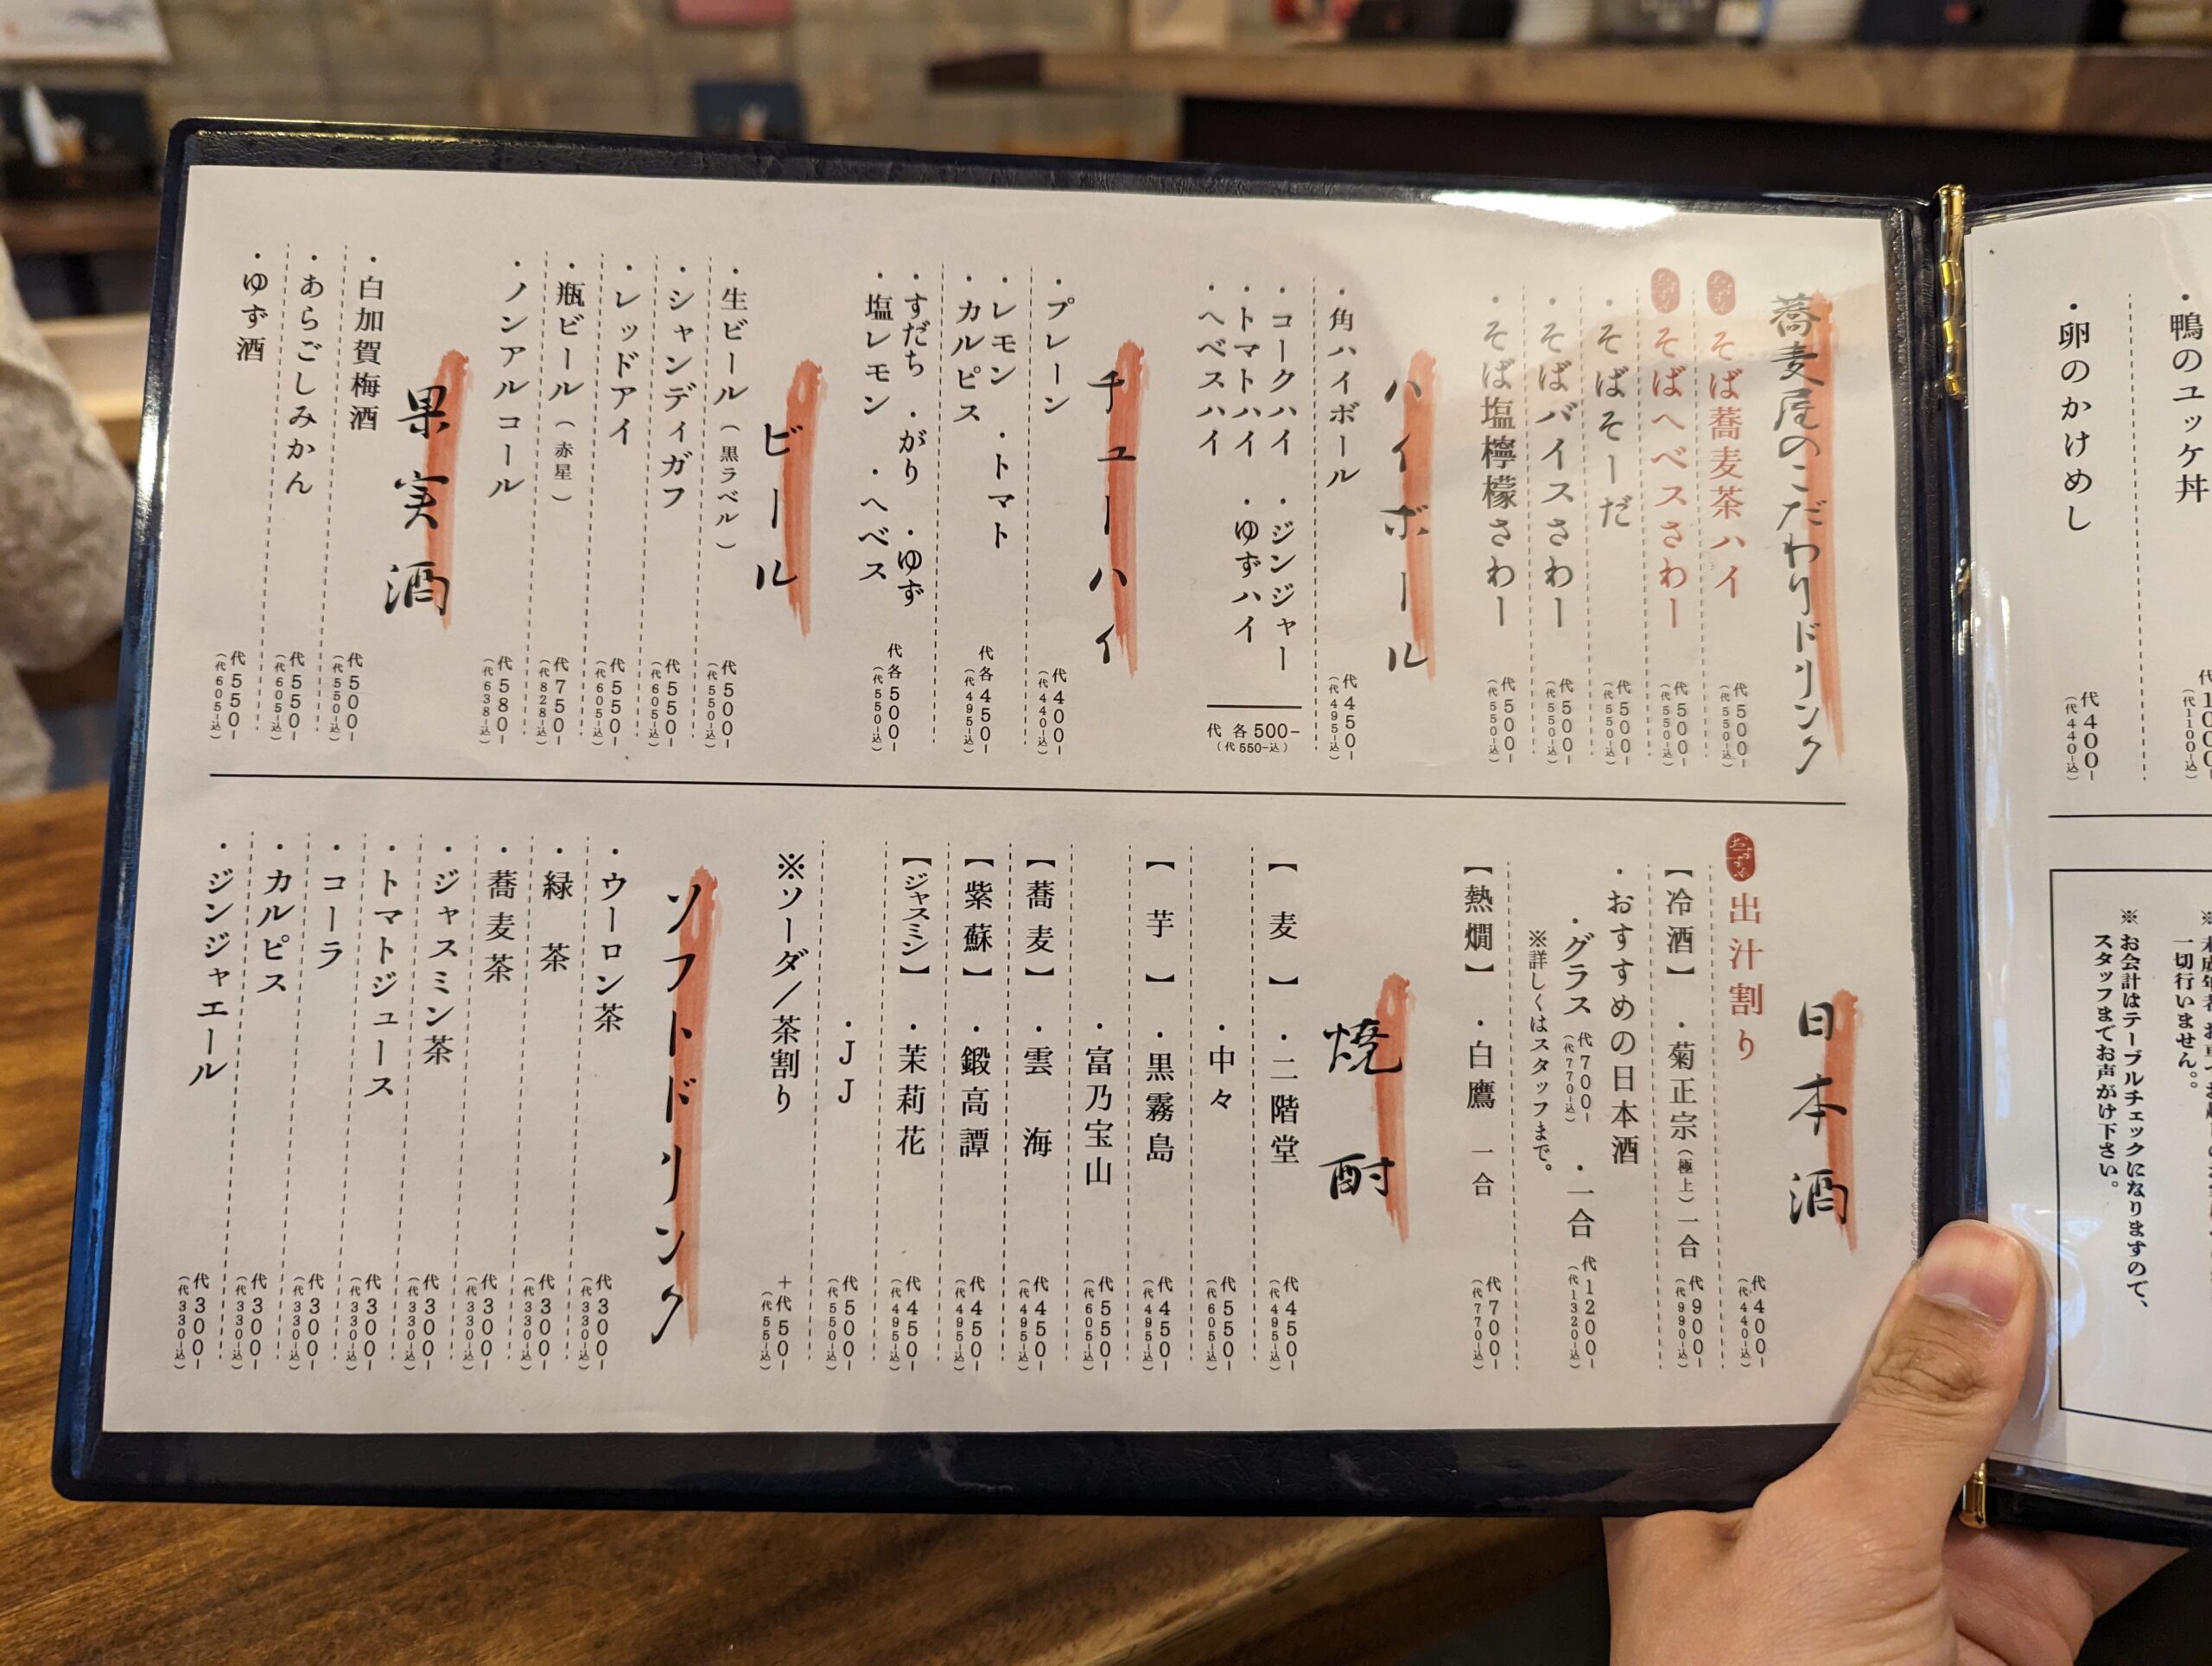 鴨のユッケ丼
・卵のかけめし
代400-
(代440-込)
※お会計はテーブルチェックになりますので、
スタッフまでお声がけ下さい。
一切行いません。
蕎麦屋のこだわりドリンク
おすすめ
そば蕎麦茶ハイ
代500-
(代550-込)
おすすめ
そばへベスさわー
代500-
(代550-込)
・そばそーだ
代500-
(代550-込)
・そばバイスさわー
代500-
(代550-込)
・そば塩檸檬さわー
代500-
(代550-込)
ハイボール
・角ハイボール
代450-
(代495-込)
・コークハイ ・ジンジャー
・トマトハイ ・ゆずハイ
・へベスハイ
代 各500-
(代550-込)
チューハイ
・プレーン
代400-
(代440-込)
・レモン ・トマト
・カルピス
代 各450-
(代495-込)
・すだち ・がり ・ゆず
・塩レモン ・へベス
代 各500-
(代550-込)
ビール
・生ビール(黒ラベル)
代500-
(代550-込)
・シャンディガフ
代550-
(代605-込)
・レッドアイ
代550-
(代605-込)
・瓶ビール(赤星)
代750-
(代828-込)
・ノンアルコール
代580-
(代638-込)
果実酒
・白加賀梅酒
代500-
(代550-込)
・あらごしみかん
代550-
(代605-込)
・ゆず酒
代550-
(代605-込)
日本酒
おすすめ
出汁割り
代400-
(代440-込)
【冷酒】 ・菊正宗(極上)一合
代900-
(代990-込)
・おすすめの日本酒
・グラス 代700- ・一合 代1200-
(代770-込) (代1320-込)
※詳しくはスタッフまで。
【熱燗】 ・白鷹 一合
代700-
(代770-込)
焼酎
【麦】 ・二階堂
代450-
(代495-込)
・中々
代550-
(代605-込)
【芋】 ・黒霧島
代450-
(代495-込)
・富乃宝山
代550-
(代605-込)
【蕎麦】 ・雲海
代450-
(代495-込)
【紫蘇】 ・鍛高譚
代450-
(代495-込)
【ジャスミン】 ・茉莉花
代450-
(代495-込)
・JJ
代500-
(代550-込)
※ソーダ/茶割り
+代50-
(代55-込)
ソフトドリンク
・ウーロン茶
代300-
(代330-込)
・緑茶
代300-
(代330-込)
・蕎麦茶
代300-
(代330-込)
・ジャスミン茶
代300-
(代330-込)
・トマトジュース
代300-
(代330-込)
・コーラ
代300-
(代330-込)
・カルピス
代300-
(代330-込)
・ジンジャエール
代300-
(代330-込)